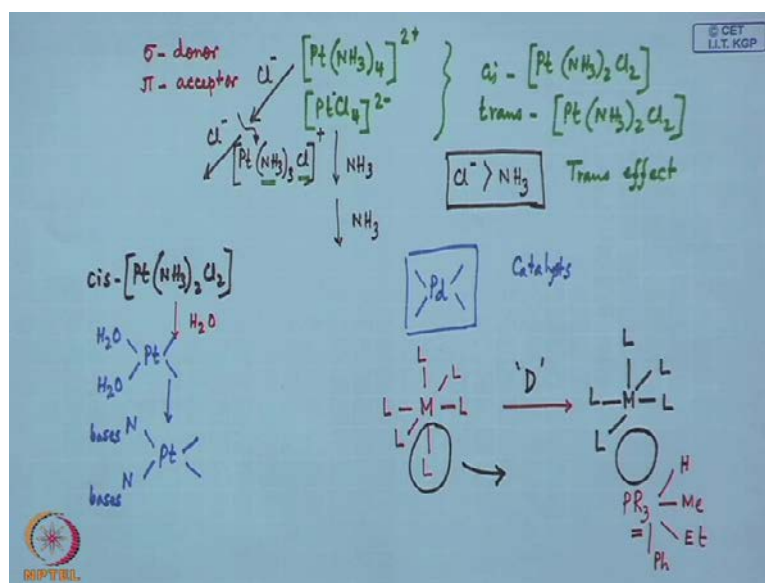 © CET
I.I.T. KGP
σ- donor
π- acceptor
Cl⁻
[Pt(NH₃)₄]²⁺
[PtCl₄]²⁻
cis - [Pt(NH₃)₂Cl₂]
trans - [Pt(NH₃)₂Cl₂]
Cl⁻
[Pt(NH₃)₃Cl]⁺
NH₃
NH₃
Cl⁻ > NH₃
Trans effect
cis-[Pt(NH₃)₂Cl₂]
H₂O
H₂O
Pt
H₂O
bases N
Pt
bases N
Pd
Catalysts
L
L
L
M
L
L
L
'D'
L
L
L
M
L
L
PR₃
H
Me
Et
Ph
NPTEL